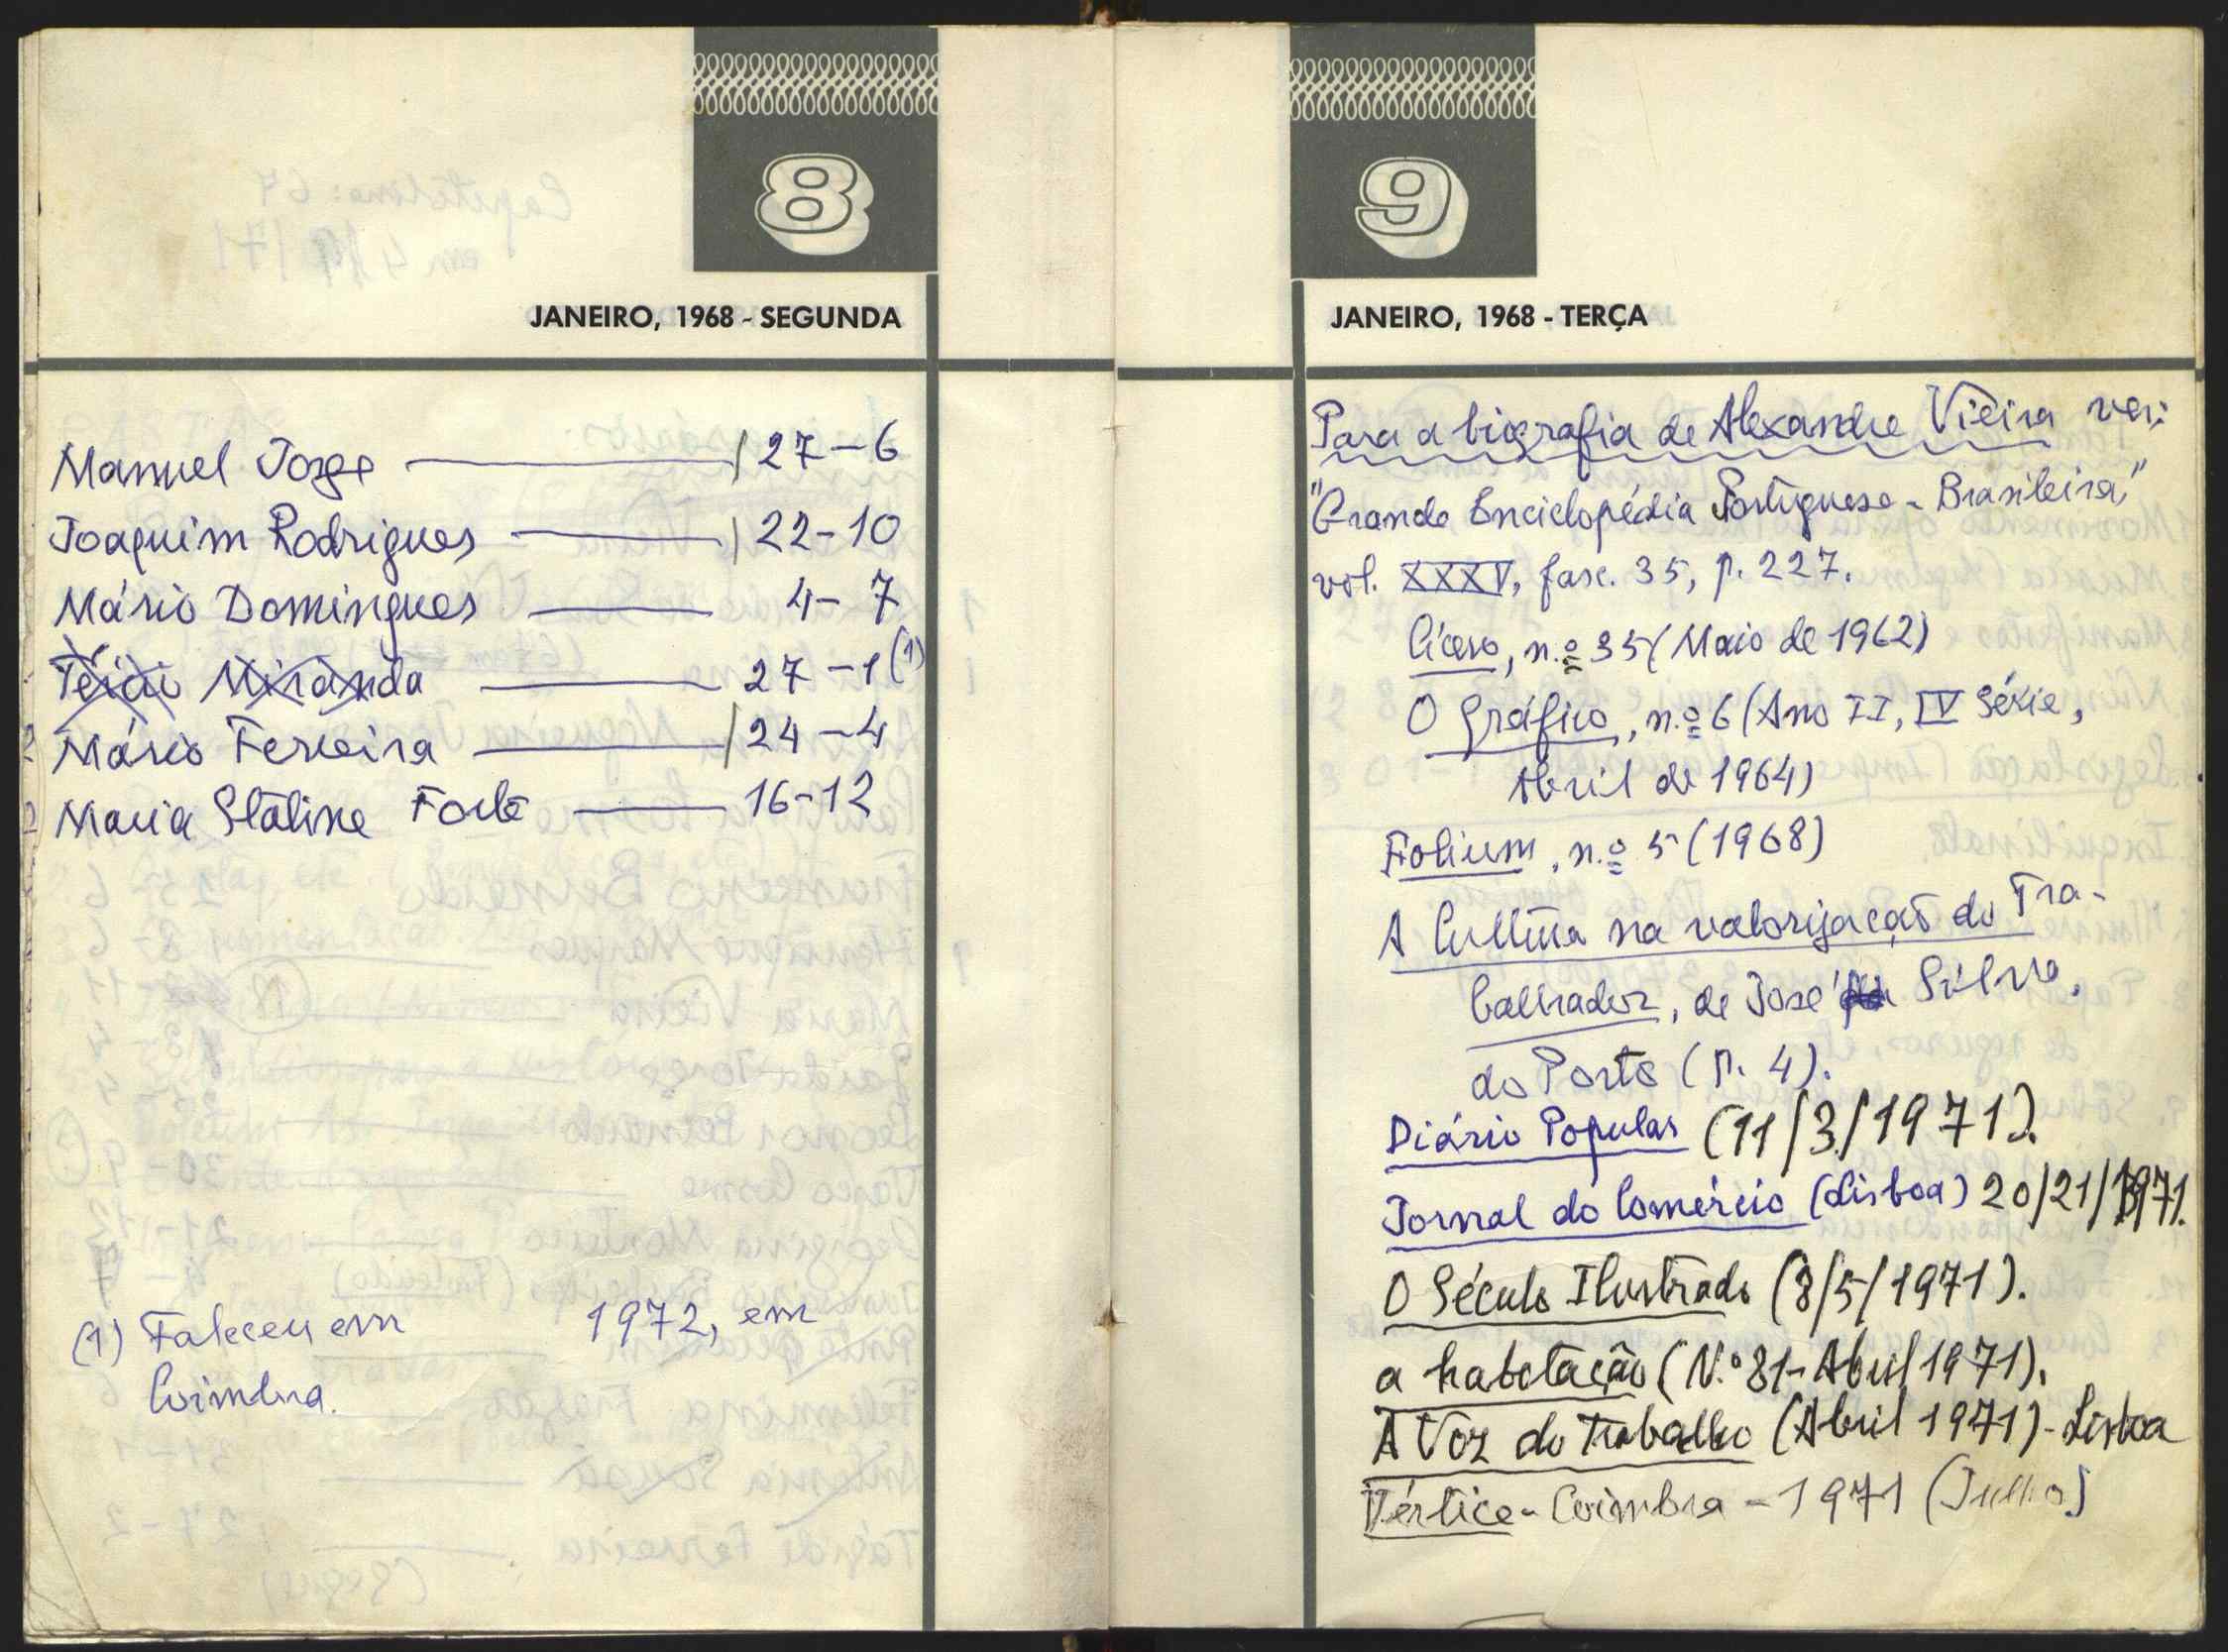 8
JANEIRO, 1968 - SEGUNDA
Manuel Jorge 27-6
Joaquim Rodrigues 22-10
Mário Domingues 4-7
Miranda 27-1 (1)
Mário Ferreira 24-4
Maria Staline Forte 16-12
(1) Faleceu em 1972, em
Coimbra.
9
JANEIRO, 1968 - TERÇA
Para a biografia de Alexandre Vieira ver:
"Grande Enciclopédia Portuguesa-Brasileira,"
vol. XXXV, fasc. 35, p. 227.
Cícero, n.º 35 (Maio de 1962)
O Gráfico, n.º 6 (Ano II, IV Série,
Abril de 1964)
Folium, n.º 5 (1968)
A Cultura na valorização do Tra-
balhador, de José Silva,
do Porto (p. 4).
Diário Popular (11/3/1971).
Jornal do Comércio (Lisboa) 20/21/3/971.
O Século Ilustrado (8/5/1971).
a habitação (N.º 81-Abril 1971).
A Voz do Trabalho (Abril 1971)-Lisboa
Vértice-Coimbra-1971 (Julho)